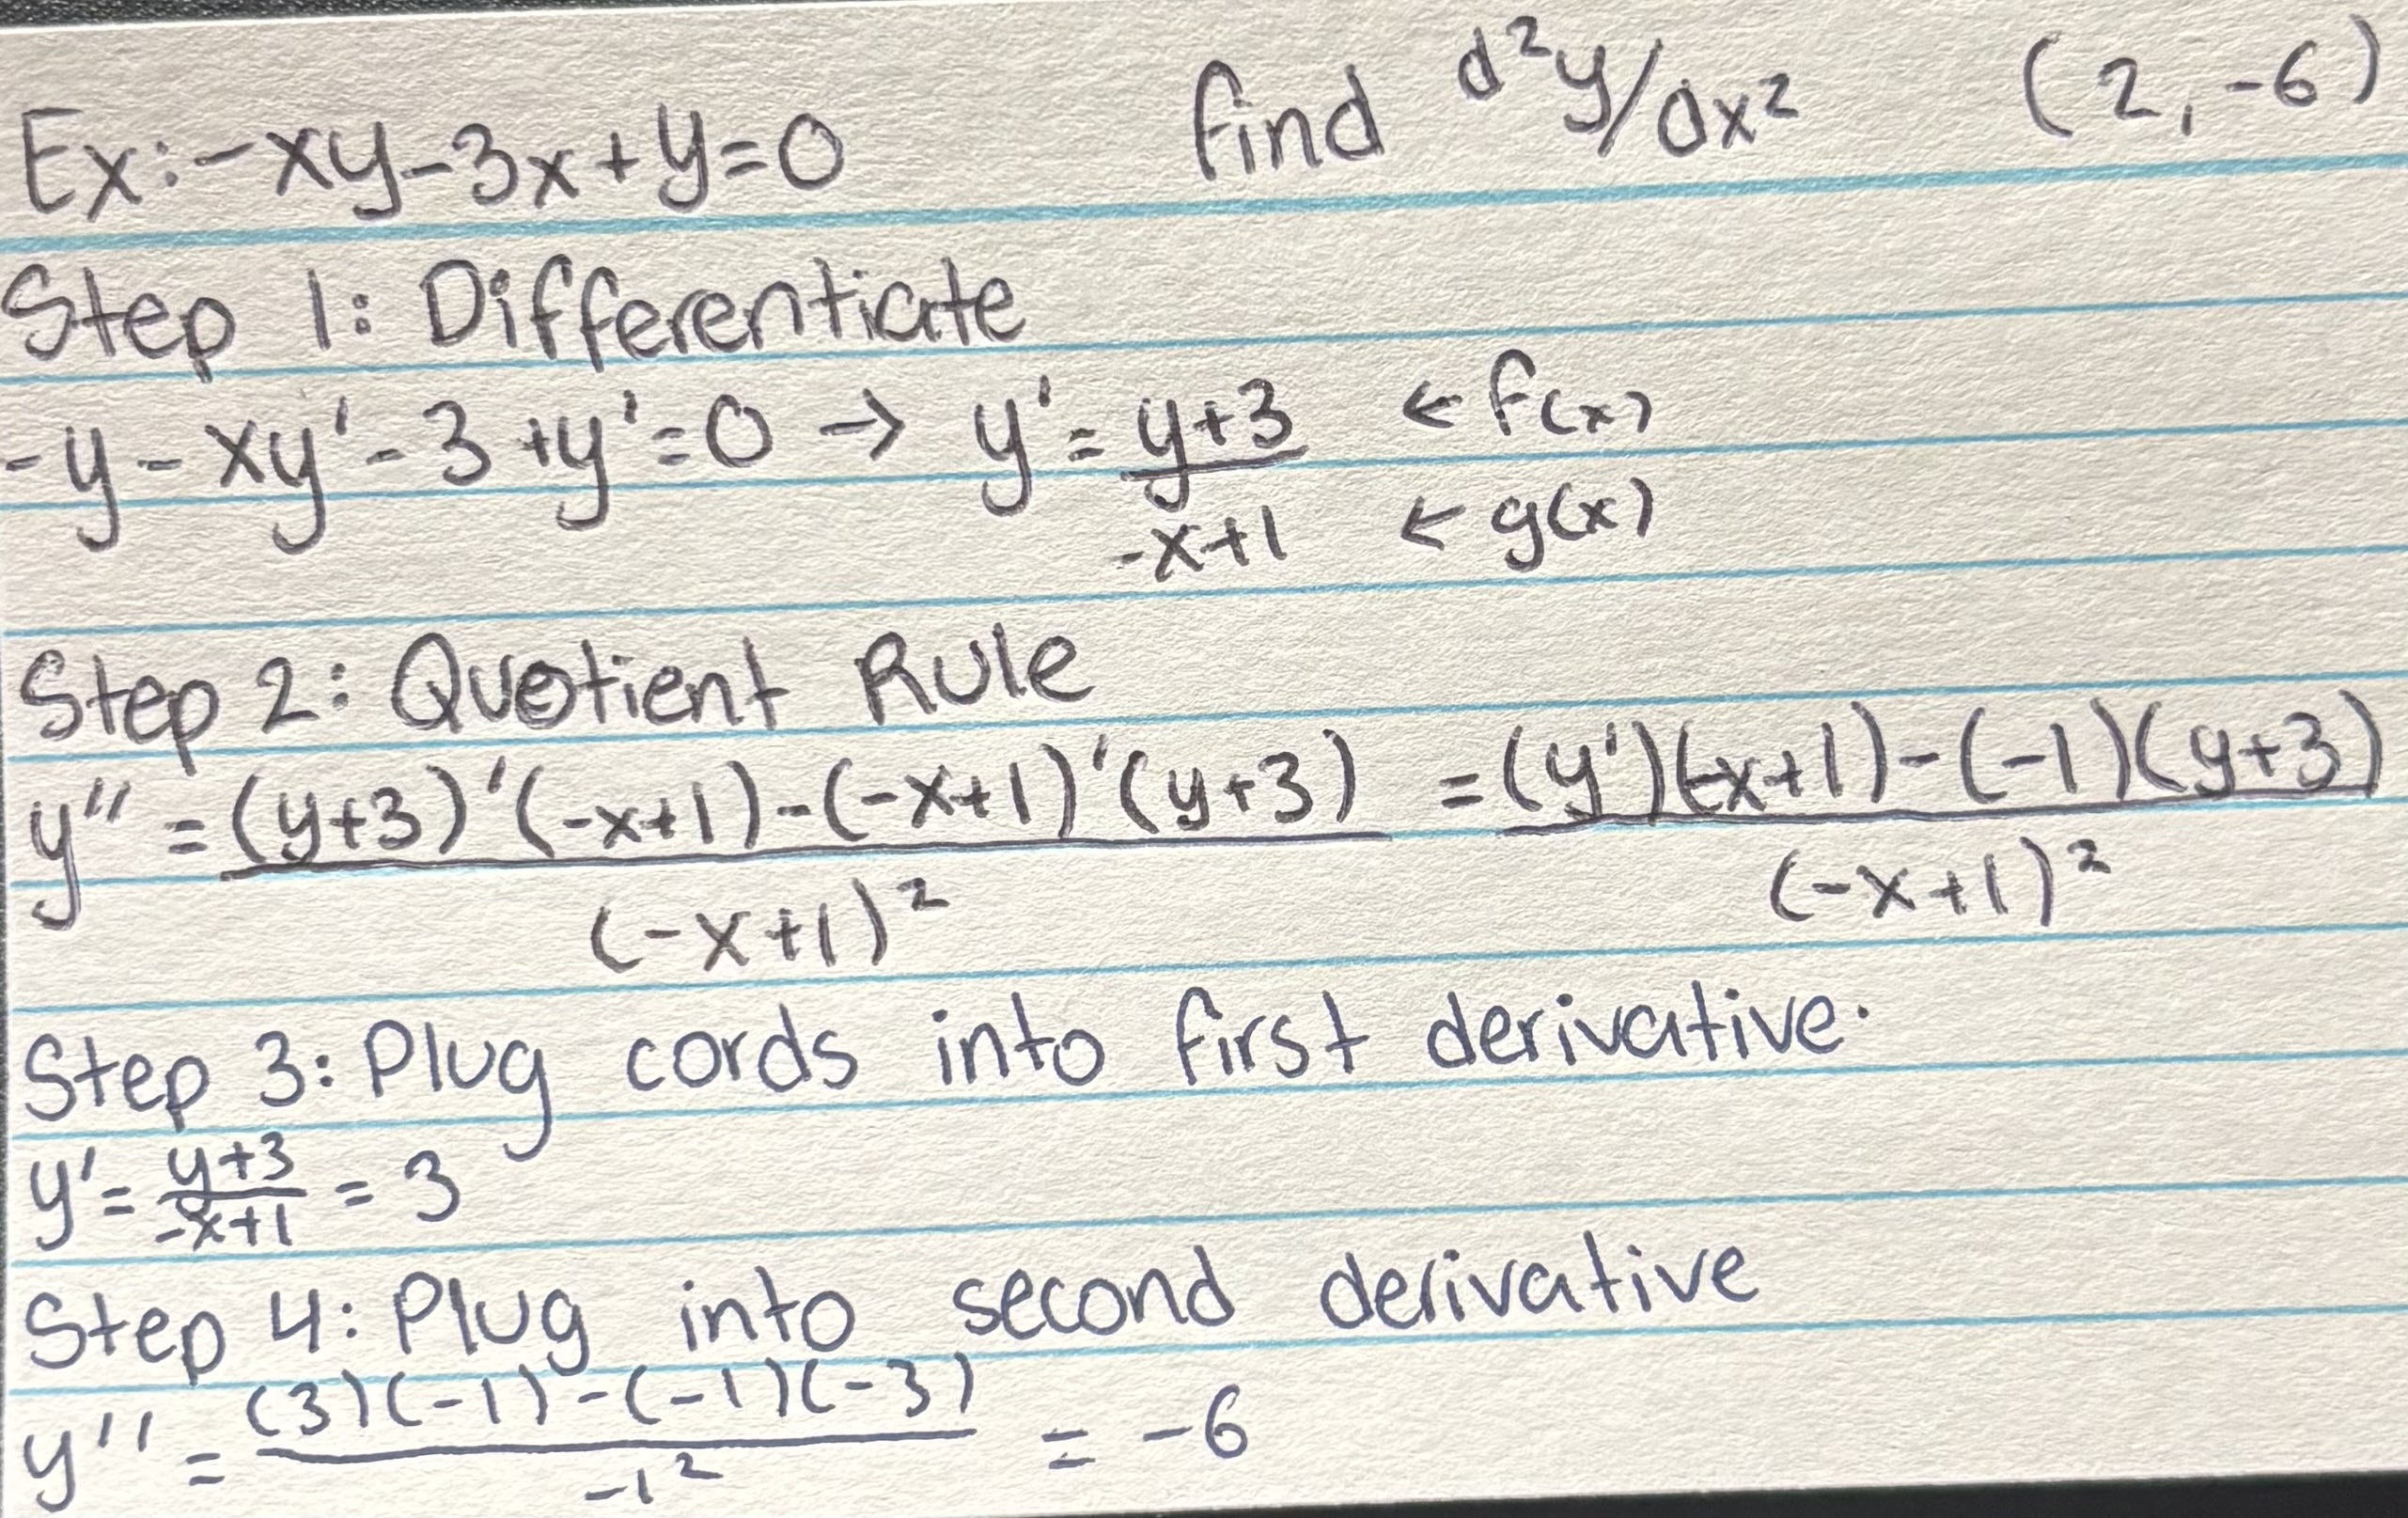 Ex: -xy-3x+y=0 find d²y/dx² (2,-6)
Step 1: Differentiate
-y-xy'-3+y'=0 → y' = (y+3)/(-x+1) ← f(x) ← g(x)
Step 2: Quotient Rule
y'' = ((y+3)'(-x+1)-(-x+1)'(y+3))/(-x+1)² = ((y')(-x+1)-(-1)(y+3))/(-x+1)²
Step 3: Plug cords into first derivative.
y' = (y+3)/(-x+1) = 3
Step 4: Plug into second derivative
y'' = ((3)(-1)-(-1)(-3))/-1² = -6